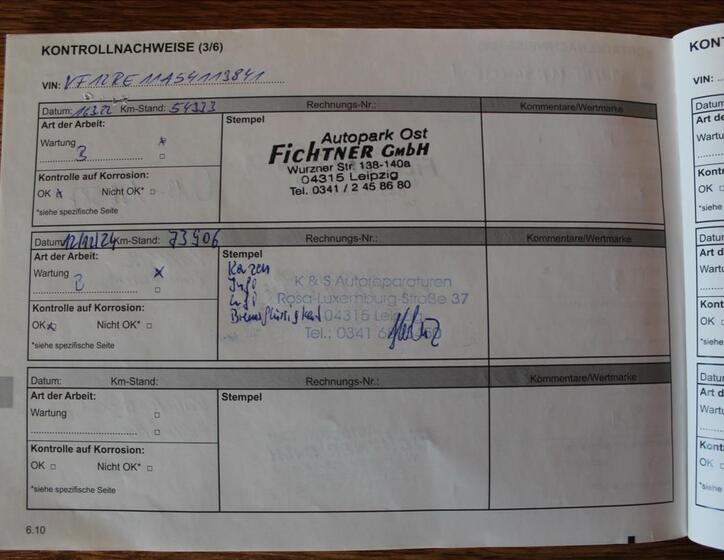 KONTROLLNACHWEISE (3/6)
VIN: VF12RE11A54113841
Datum: Km-Stand: 54373 Rechnungs-Nr.: Kommentare/Wertmarke
Art der Arbeit:
Stempel
Wartung
B
Kontrolle auf Korrosion:
OK Nicht OK*
*siehe spezifische Seite
Autopark Ost
FICHTNER GMBH
Wurzner Str. 138-140a
04315 Leipzig
Tel. 0341 / 2 45 86 80
Datum: 12/12/24 Km-Stand: 73906 Rechnungs-Nr.: Kommentare/Wertmarke
Art der Arbeit:
Stempel
Wartung
B
Kontrolle auf Korrosion:
OK Nicht OK*
*siehe spezifische Seite
Kerzen
Bremsflüssigkeit
K & S Autoreparaturen
Rosa-Luxemburg-Straße 37
04315 Leipzig
Tel.: 0341
Datum: Km-Stand: Rechnungs-Nr.: Kommentare/Wertmarke
Art der Arbeit:
Stempel
Wartung
Kontrolle auf Korrosion:
OK Nicht OK*
*siehe spezifische Seite
6.10
KONT
VIN:
Datum:
Art de
Wartu
Kontr
OK
*siehe
Datum:
Art d
Wartu
Kont
OK
*siehe
Datum
Art d
Wart
Kont
OK
*sieh